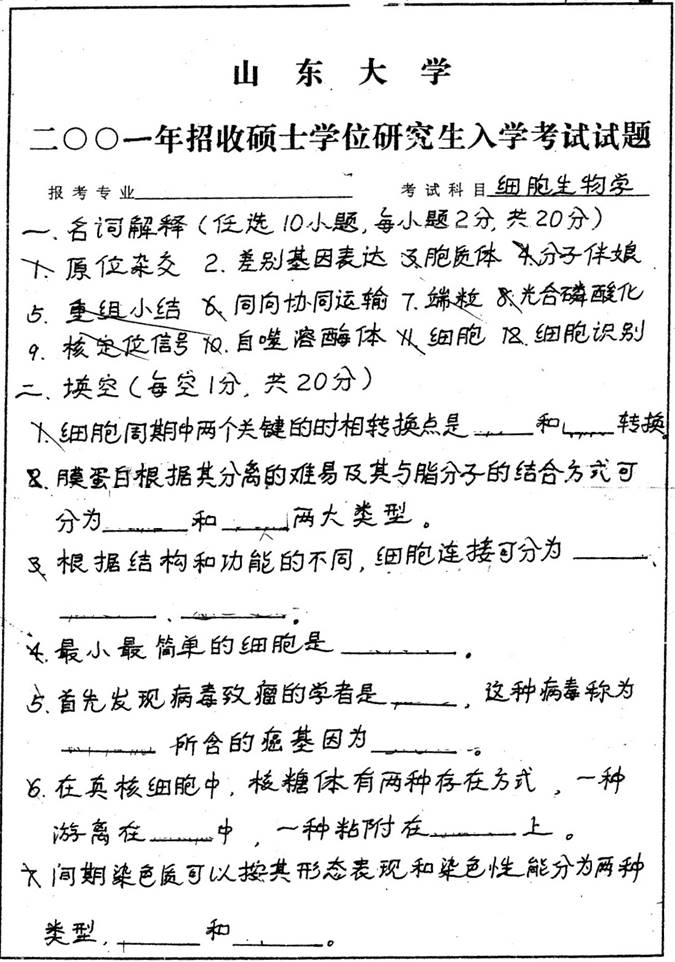 山东大学
二〇〇一年招收硕士学位研究生入学考试试题
报考专业____ 考试科目 细胞生物学
一、名词解释（任选10小题，每小题2分，共20分）
1. 原位杂交 2. 差别基因表达 3. 胞质体 4. 分子伴娘
5. 重组小结 6. 同向协同运输 7. 端粒 8. 光合磷酸化
9. 核定位信号 10. 自噬溶酶体 11. 细胞 12. 细胞识别
二、填空（每空1分，共20分）
1. 细胞周期中两个关键的时相转换点是____和____转换。
2. 膜蛋白根据其分离的难易及其与脂分子的结合方式可
分为____和____两大类型。
3. 根据结构和功能的不同，细胞连接可分为____、
____、____。
4. 最小最简单的细胞是____。
5. 首先发现病毒致瘤的学者是____，这种病毒称为
____所含的癌基因为____。
6. 在真核细胞中，核糖体有两种存在方式，一种
游离在____中，一种粘附在____上。
7. 间期染色质可以按其形态表现和染色性能分为两种
类型，____和____。